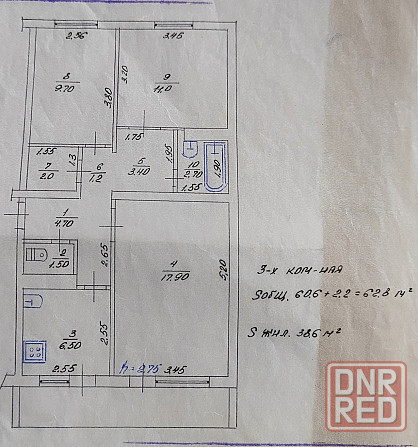 2.56
3.45
8
9.70
3.80
3.20
9
11.0
1.75
1.55
7
2.0
1.3
6
1.2
5
3.40
1.95
10
2.70
1.55
1.90
1
4.70
2
1.50
2.65
4
17.90
5,20
3
6,50
2.55
2.55
h=2.75
3.45
3-х ком-ная
Sобщ. 60,6+2,2=62,8 м²
S жил. 38,6 м²
DNR
RED